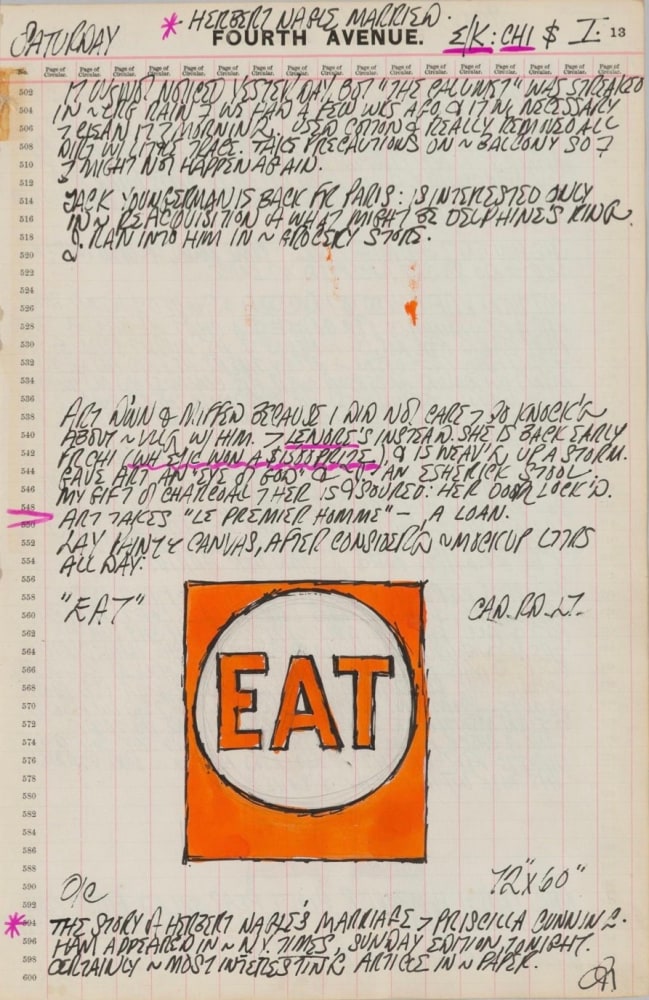 SATURDAY * HERBERT NAGLE MARRIED.
FOURTH AVENUE. E/K: CHI $ I. 13
Page of Circular. Page of Circular. Page of Circular. Page of Circular. Page of Circular. Page of Circular. Page of Circular. Page of Circular. Page of Circular. Page of Circular. Page of Circular. Page of Circular. Page of Circular. Page of Circular. Page of Circular. Page of Circular. Page of Circular.
502 NOTICED YESTERDAY, BUT "THE CALUMET" WAS STREAKED
504 IN ~ RAIN WE HAD A FEW WKS AGO. & IT NECESSARY
506 CLEAN IT MORNING. USED COTTON & REALLY REMOVED ALL
508 DIRT W/ LITTLE TRACE. TAKE PRECAUTIONS ON ~ BALCONY SO
510 MIGHT NOT HAPPEN AGAIN.
512
514 JACK YOUNGERMAN IS BACK FR PARIS: IS INTERESTED ONLY
516 IN ~ REACQUISITION OF WHAT MIGHT BE DELPHINE'S RING.
518 I RAN INTO HIM IN ~ GROCERY STORE.
520
522
524
526
528
530
532
534
536
538 ART & MIFFED BECAUSE I DID NOT CARE GO KNOCK'G
540 ABOUT ~ W/ HIM. LENORE'S INSTEAD. SHE IS BACK EARLY
542 FR CHI (WH SHE WON A $1500 PRIZE) & IS WEAV'G UP A STORM.
544 GAVE ART AN "EYE OF GOD" & AN ESHERICK STOOL.
546 MY GIFT OF CHARCOAL HER IS SOURED: HER DOOR LOCK'D.
548 ART TAKES "LE PREMIER HOMME" – , A LOAN.
550 LAY PAINT CANVAS, AFTER CONSIDER'G ~ MOCKUP
552 ALL DAY:
554
556
558 "EAT" CAD. RD. LT.
560
562
564
566
568 EAT
570
572
574
576
578
580
582
584
586
588
590 O/C 72" X 60"
592
594 * THE STORY OF HERBERT NAGLE'S MARRIAGE PRISCILLA CUNNING-
596 HAM APPEARED IN ~ N.Y. TIMES, SUNDAY EDITION, TONIGHT.
598 CERTAINLY ~ MOST INTERESTING ARTICLE IN ~ PAPER.
600